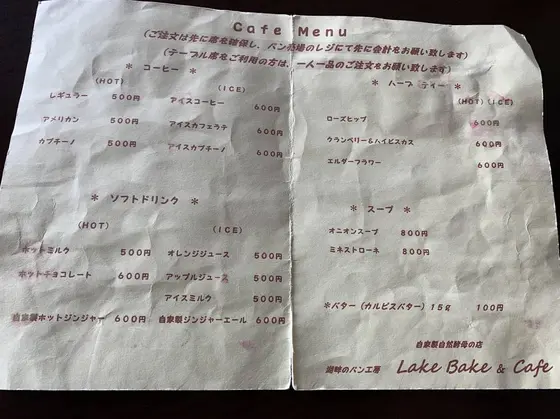 Cafe Menu
(ご注文は先に席を確保し、パン売場のレジにて先に会計をお願い致します)
(テーブル席をご利用の方は、一人一品のご注文をお願い致します)
* コーヒー *
(HOT) (ICE)
レギュラー 500円 アイスコーヒー 600円
アメリカン 500円 アイスカフェラテ 600円
カプチーノ 500円 アイスカプチーノ 600円
* ソフトドリンク *
(HOT) (ICE)
ホットミルク 500円 オレンジジュース 500円
ホットチョコレート 600円 アップルジュース 500円
アイスミルク 500円
自家製ホットジンジャー 600円 自家製ジンジャーエール 600円
* ハーブ ティー *
(HOT)(ICE)
ローズヒップ 600円
クランベリー&ハイビスカス 600円
エルダーフラワー 600円
* スープ *
オニオンスープ 800円
ミネストローネ 800円
*バター(カルピスバター)15g 100円
自家製自然酵母の店
湖畔のパン工房 Lake Bake & Cafe